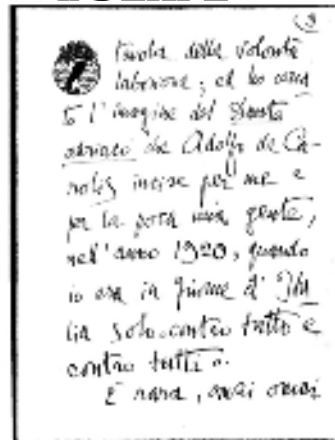 (3
tavola della volontà
laboriosa; ed ho
to l'imagine del
adriaco che Adolfo de Ca-
rolis incise per me e
per la poca mia gente,
nell'anno 1920, quando
io era in Fiume d'Ita
lia solo contro tutto e
contro tutti.
È rara, omai omai